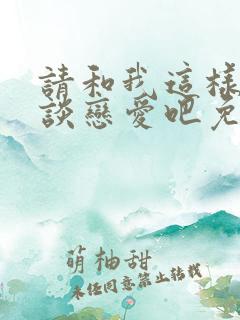 請和我這樣
談戀愛吧免
萌柚甜
未任同意禁止转载